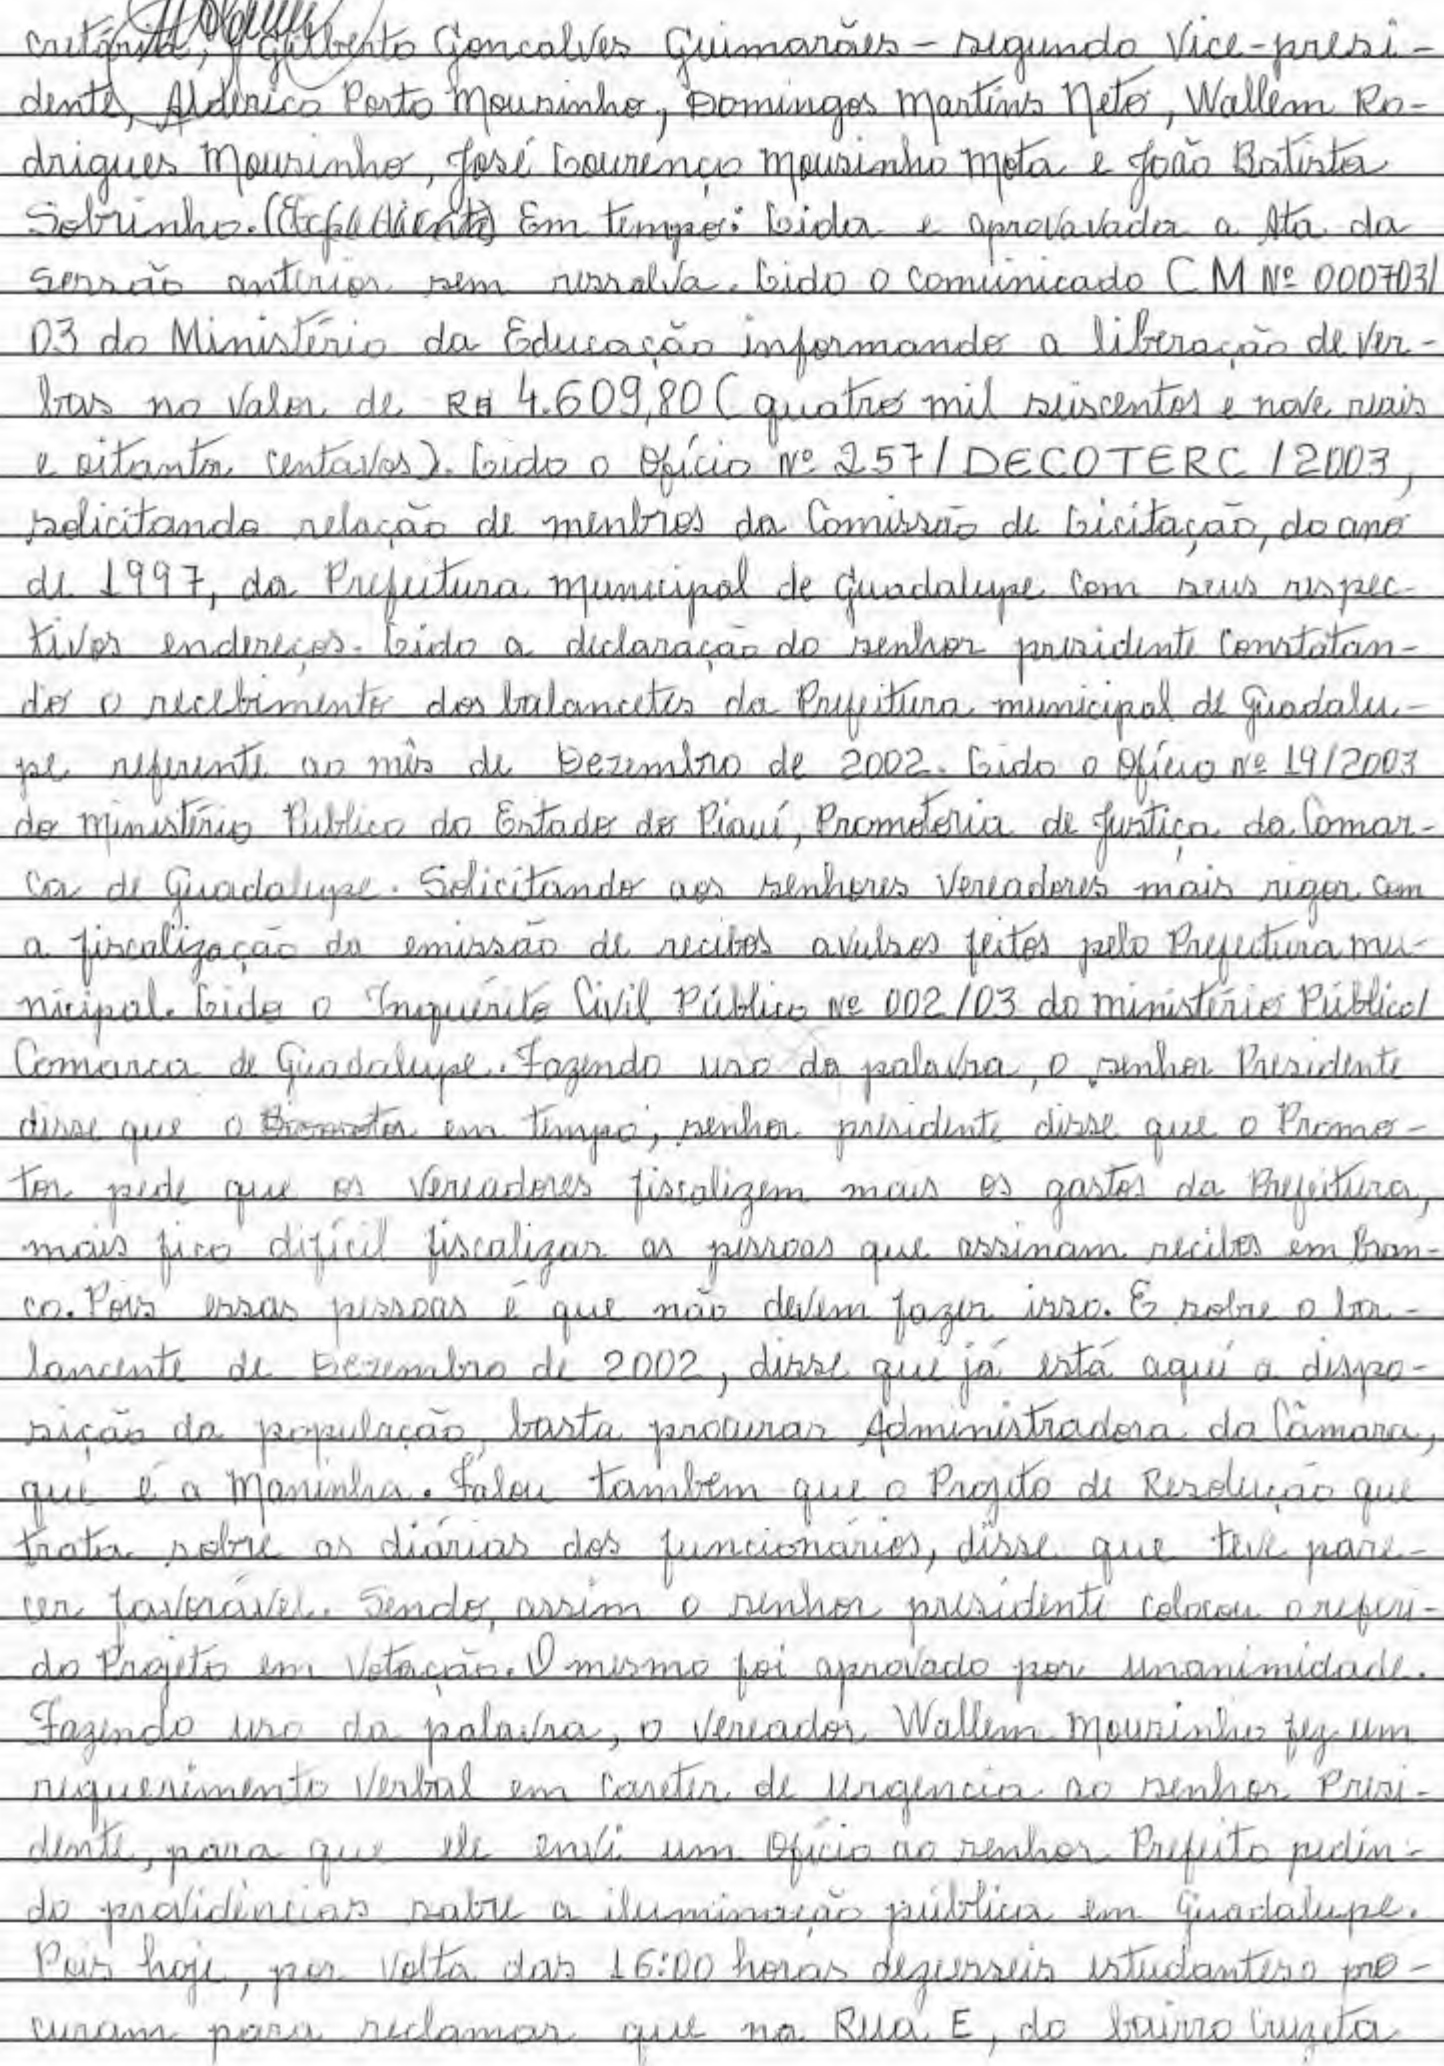 cretária, Gilberto Goncalves Guimarães - segundo Vice-presi-
dente, Alderico Porto Mousinho, Domingos Martins Neto, Wallem Ro-
drigues Mousinho, José Lourenço Mousinho Mota e João Batista
Sobrinho. (Expediente) Em tempo: Lida e aprovavada a Ata da
Sessão anterior sem ressalva. Lido o comunicado C M Nº 000703/
03 do Ministério da Educação informando a liberação de ver-
bas no valor de R$ 4.609,80 (quatro mil seiscentos e nove reais
e oitanta centavos). Lido o Ofício Nº 257/DECOTERC/2003,
solicitando relação de menbros da Comissão de Licitação, do ano
de 1997, da Prefeitura Municipal de Guadalupe com seus respec-
tivos endereços. Lido a declaração do senhor presidente constatan-
do o recebimento dos balancetes da Prefeitura municipal de Guadalu-
pe referente ao mês de Dezembro de 2002. Lido o Ofício Nº 19/2003
do Ministério Publico do Estado do Piauí, Promotoria de Justiça da Comar-
ca de Guadalupe. Solicitando aos senhores Vereadores mais rigor com
a fiscalização da emissão de recibos avulsos feitos pelo Prefeitura mu-
nicipal. Lido o Inquérito Civil Público Nº 002/03 do ministério Público/
Comarca de Guadalupe. Fazendo uso da palavra, o senhor Presidente
disse que o Promotor em tempo, senhor presidente disse que o Promo-
tor pede que os Vereadores fiscalizem mais os gastos da Prefeitura,
mais fico difícil fiscalizar as pessoas que assinam recibos em bran-
co. Pois essas pessoas é que não devem fazer isso. E sobre o ba-
lancente de Dezembro de 2002, disse que já está aqui a dispo-
sição da população, basta procurar Administradora da Câmara,
que é a Maninha. Falou também que o Projeto de Resolução que
trata sobre as diárias dos funcionários, disse que teve pare-
cer favorável. Sendo assim o senhor presidente colocou o referi-
do Projeto em Votação. O mesmo foi aprovado por unanimidade.
Fazendo uso da palavra, o vereador Wallem Mousinho fez um
requerimento Verbal em careter de urgência ao senhor Presi-
dente, para que ele envi um Ofício ao senhor Prefeito pedin-
do providências sobre a iluminação pública em Guadalupe.
Pois hoje, por volta das 16:00 horas dezesseis estudantes o pro-
curam para reclamar que na Rua E, do bairro Cruzeta